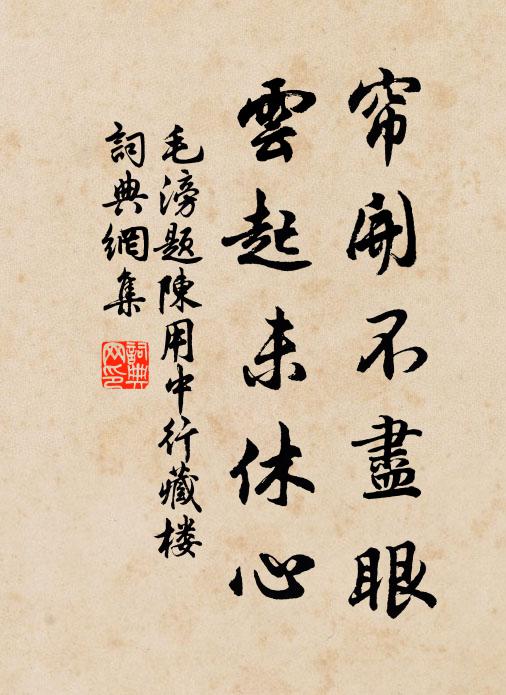 帘開不盡眼
雲起未休心
毛滂题陳用中行藏楼
詞典網集
詞典网印